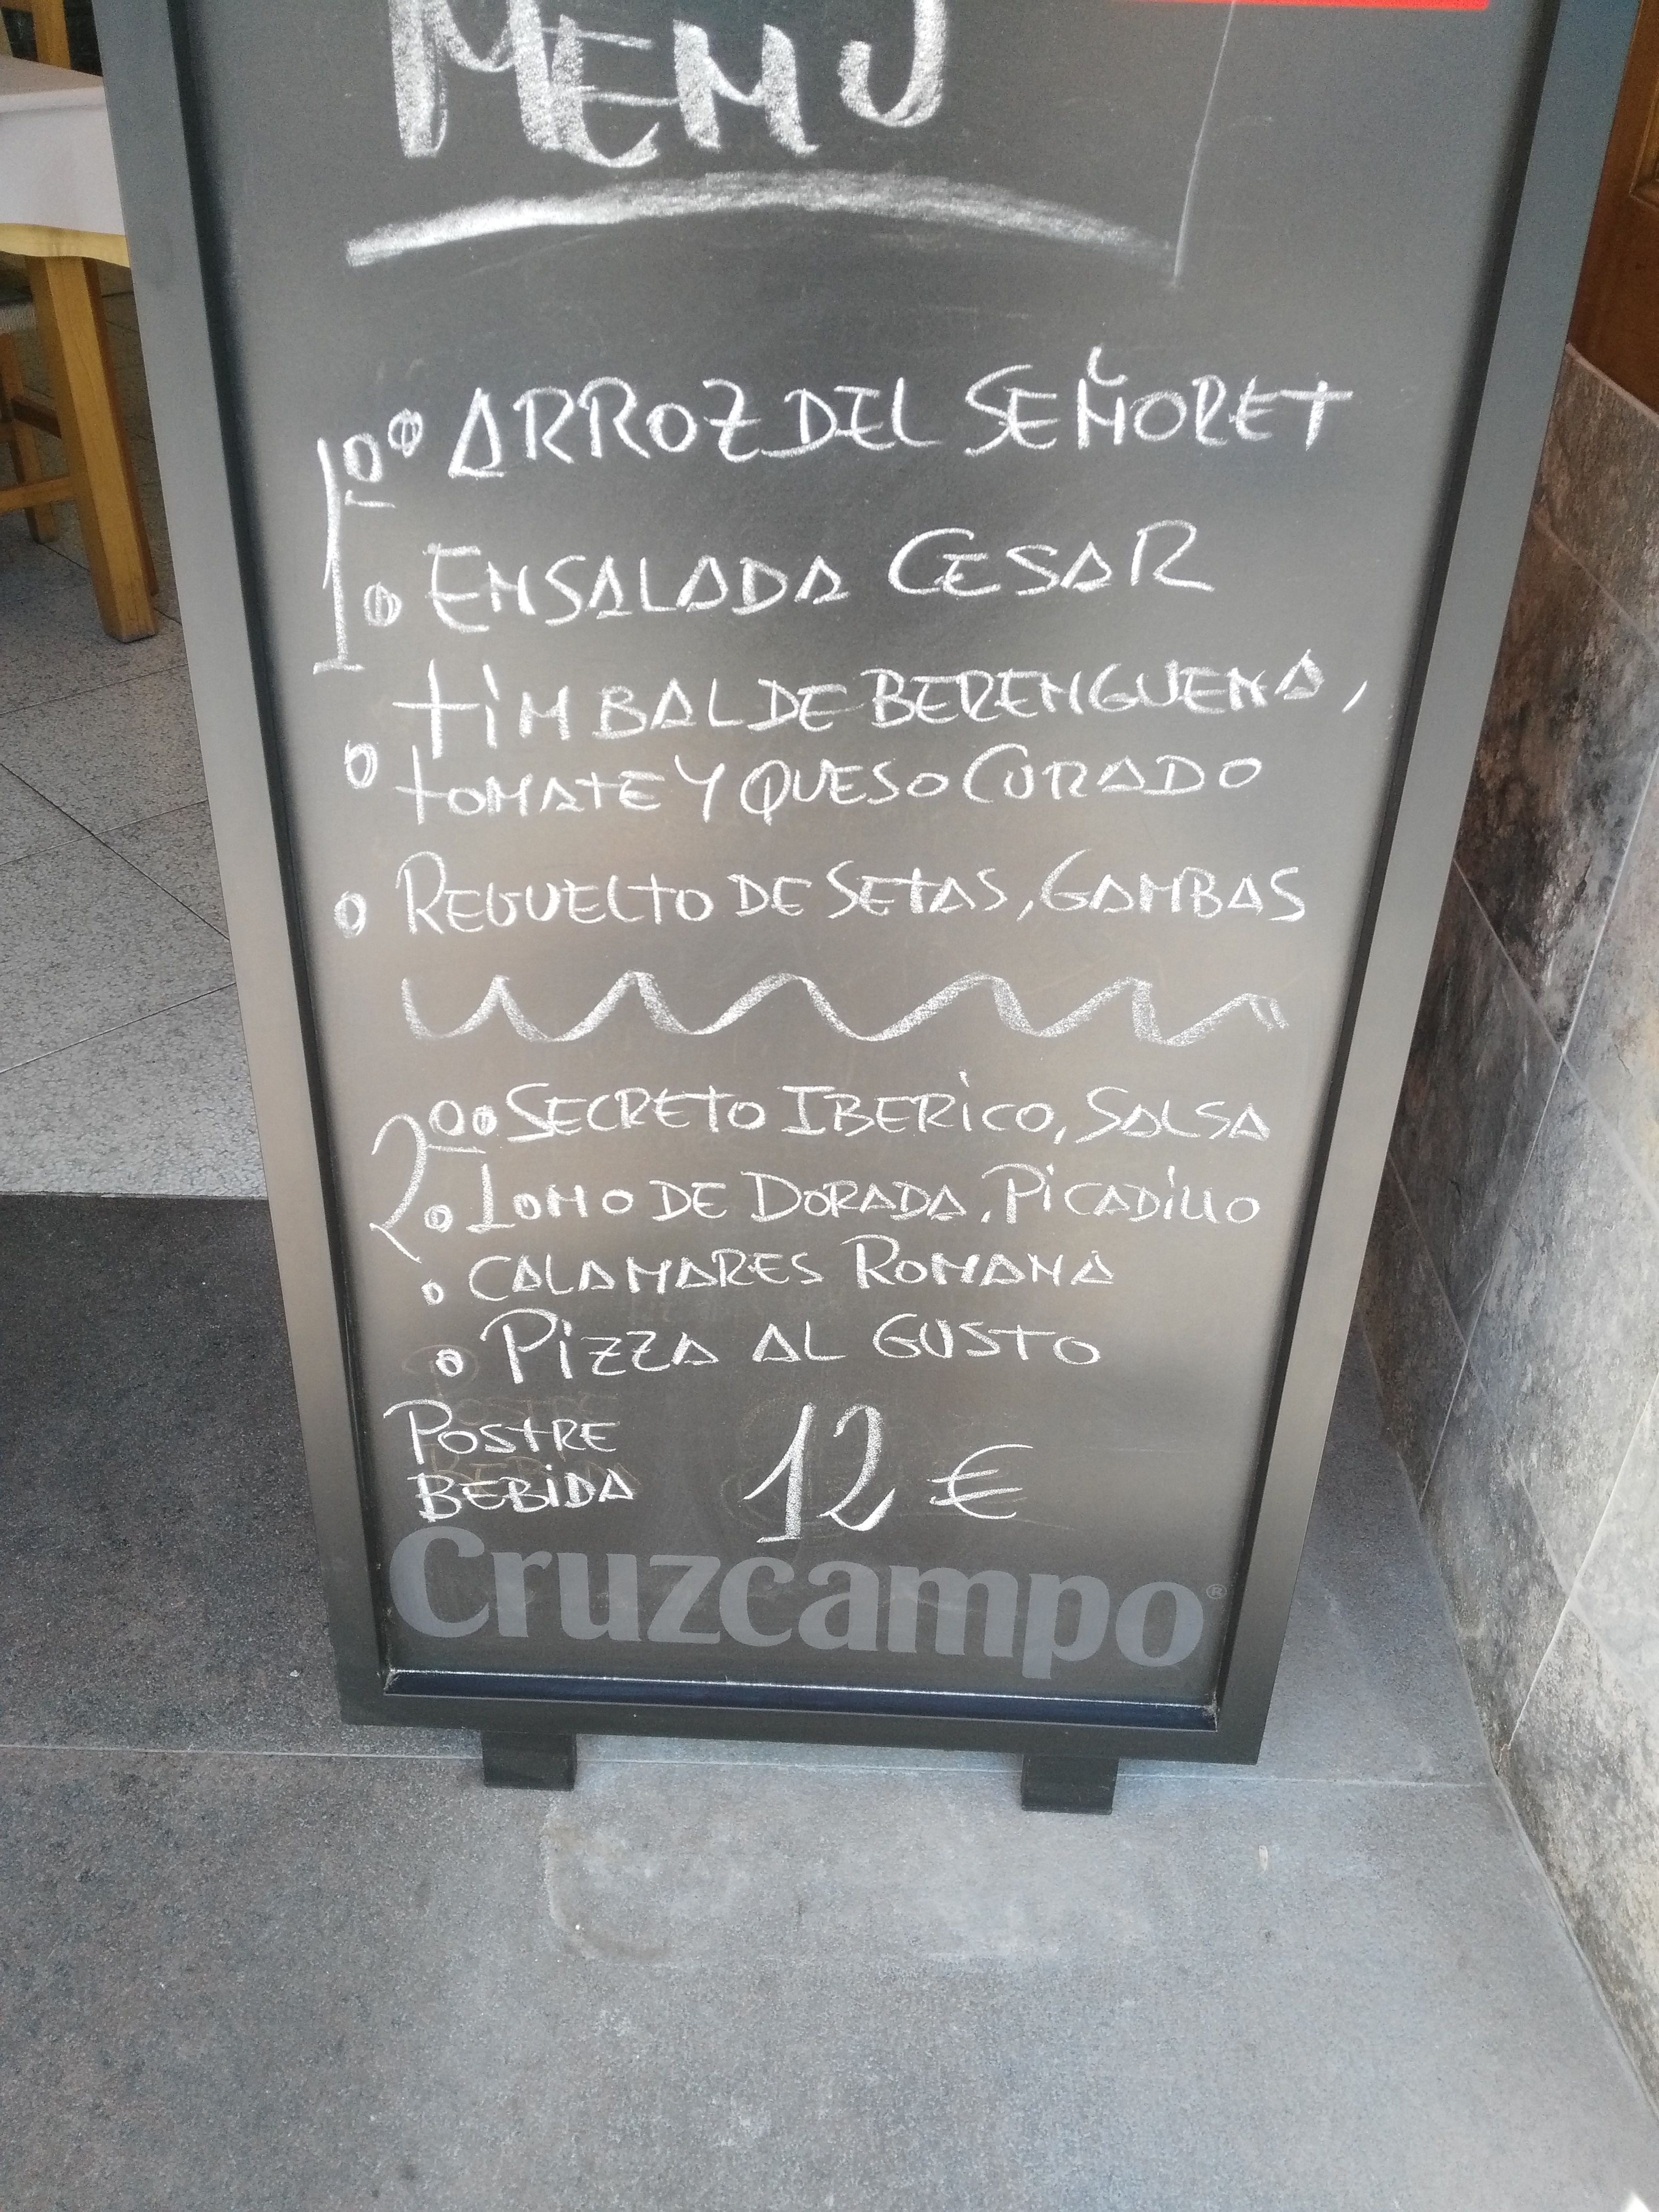 MENU
1º ARROZ DEL SEÑORET
ENSALADA CESAR
TIMBAL DE BERENGUENA,
TOMATE Y QUESO CURADO
REVUELTO DE SETAS, GAMBAS
2º SECRETO IBERICO, SALSA
LOMO DE DORADA, PICADILLO
CALAMARES ROMANA
PIZZA AL GUSTO
POSTRE
BEBIDA
12 €
Cruzcampo®